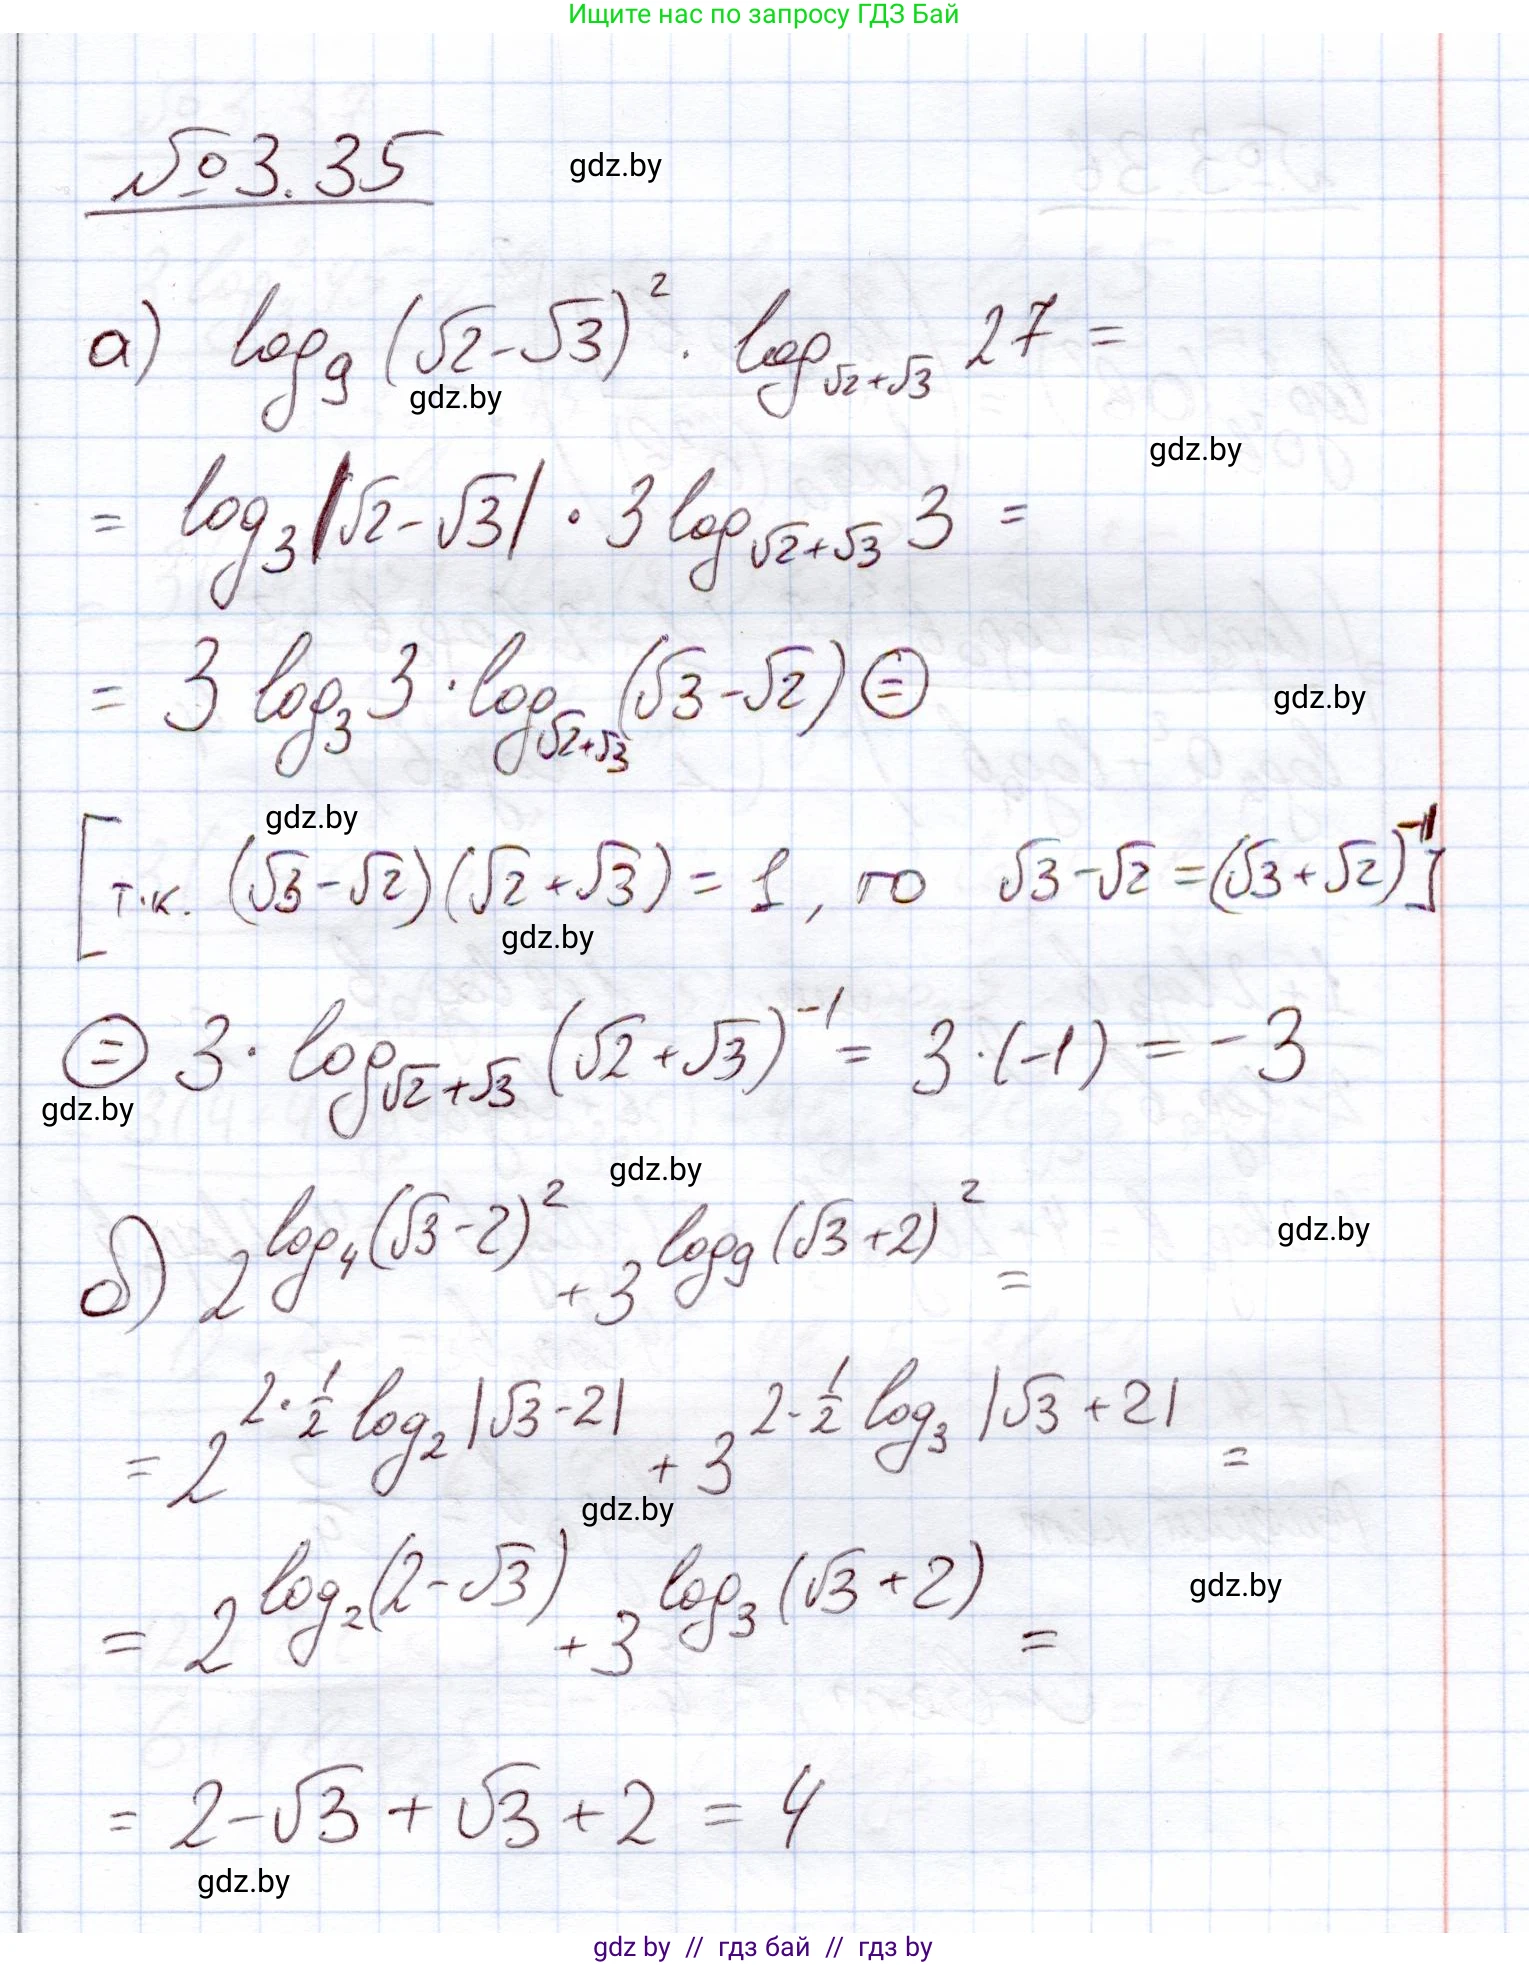 Ищите нас по запросу ГДЗ Бай
№3.35
gdz.by
а) log₉(√2-√3)² · log_{√2+√3} 27 =
gdz.by
gdz.by
= log₃|√2-√3| · 3 log_{√2+√3} 3 =
= 3 log₃3 · log_{√2+√3}(√3-√2) ⊜
gdz.by
gdz.by
[т.к. (√3-√2)(√2+√3) = 1, то √3-√2 = (√3+√2)⁻¹]
gdz.by
⊜ 3 · log_{√2+√3}(√2+√3)⁻¹ = 3·(-1) = -3
gdz.by
gdz.by
б) 2^{log₄(√3-2)²} + 3^{log₉(√3+2)²} =
gdz.by
= 2^{2·1/2 log₂|√3-2|} + 3^{2·1/2 log₃|√3+2|} =
gdz.by
= 2^{log₂(2-√3)} + 3^{log₃(√3+2)} =
gdz.by
= 2-√3+√3+2 = 4
gdz.by
gdz by // гдз бай // гдз by